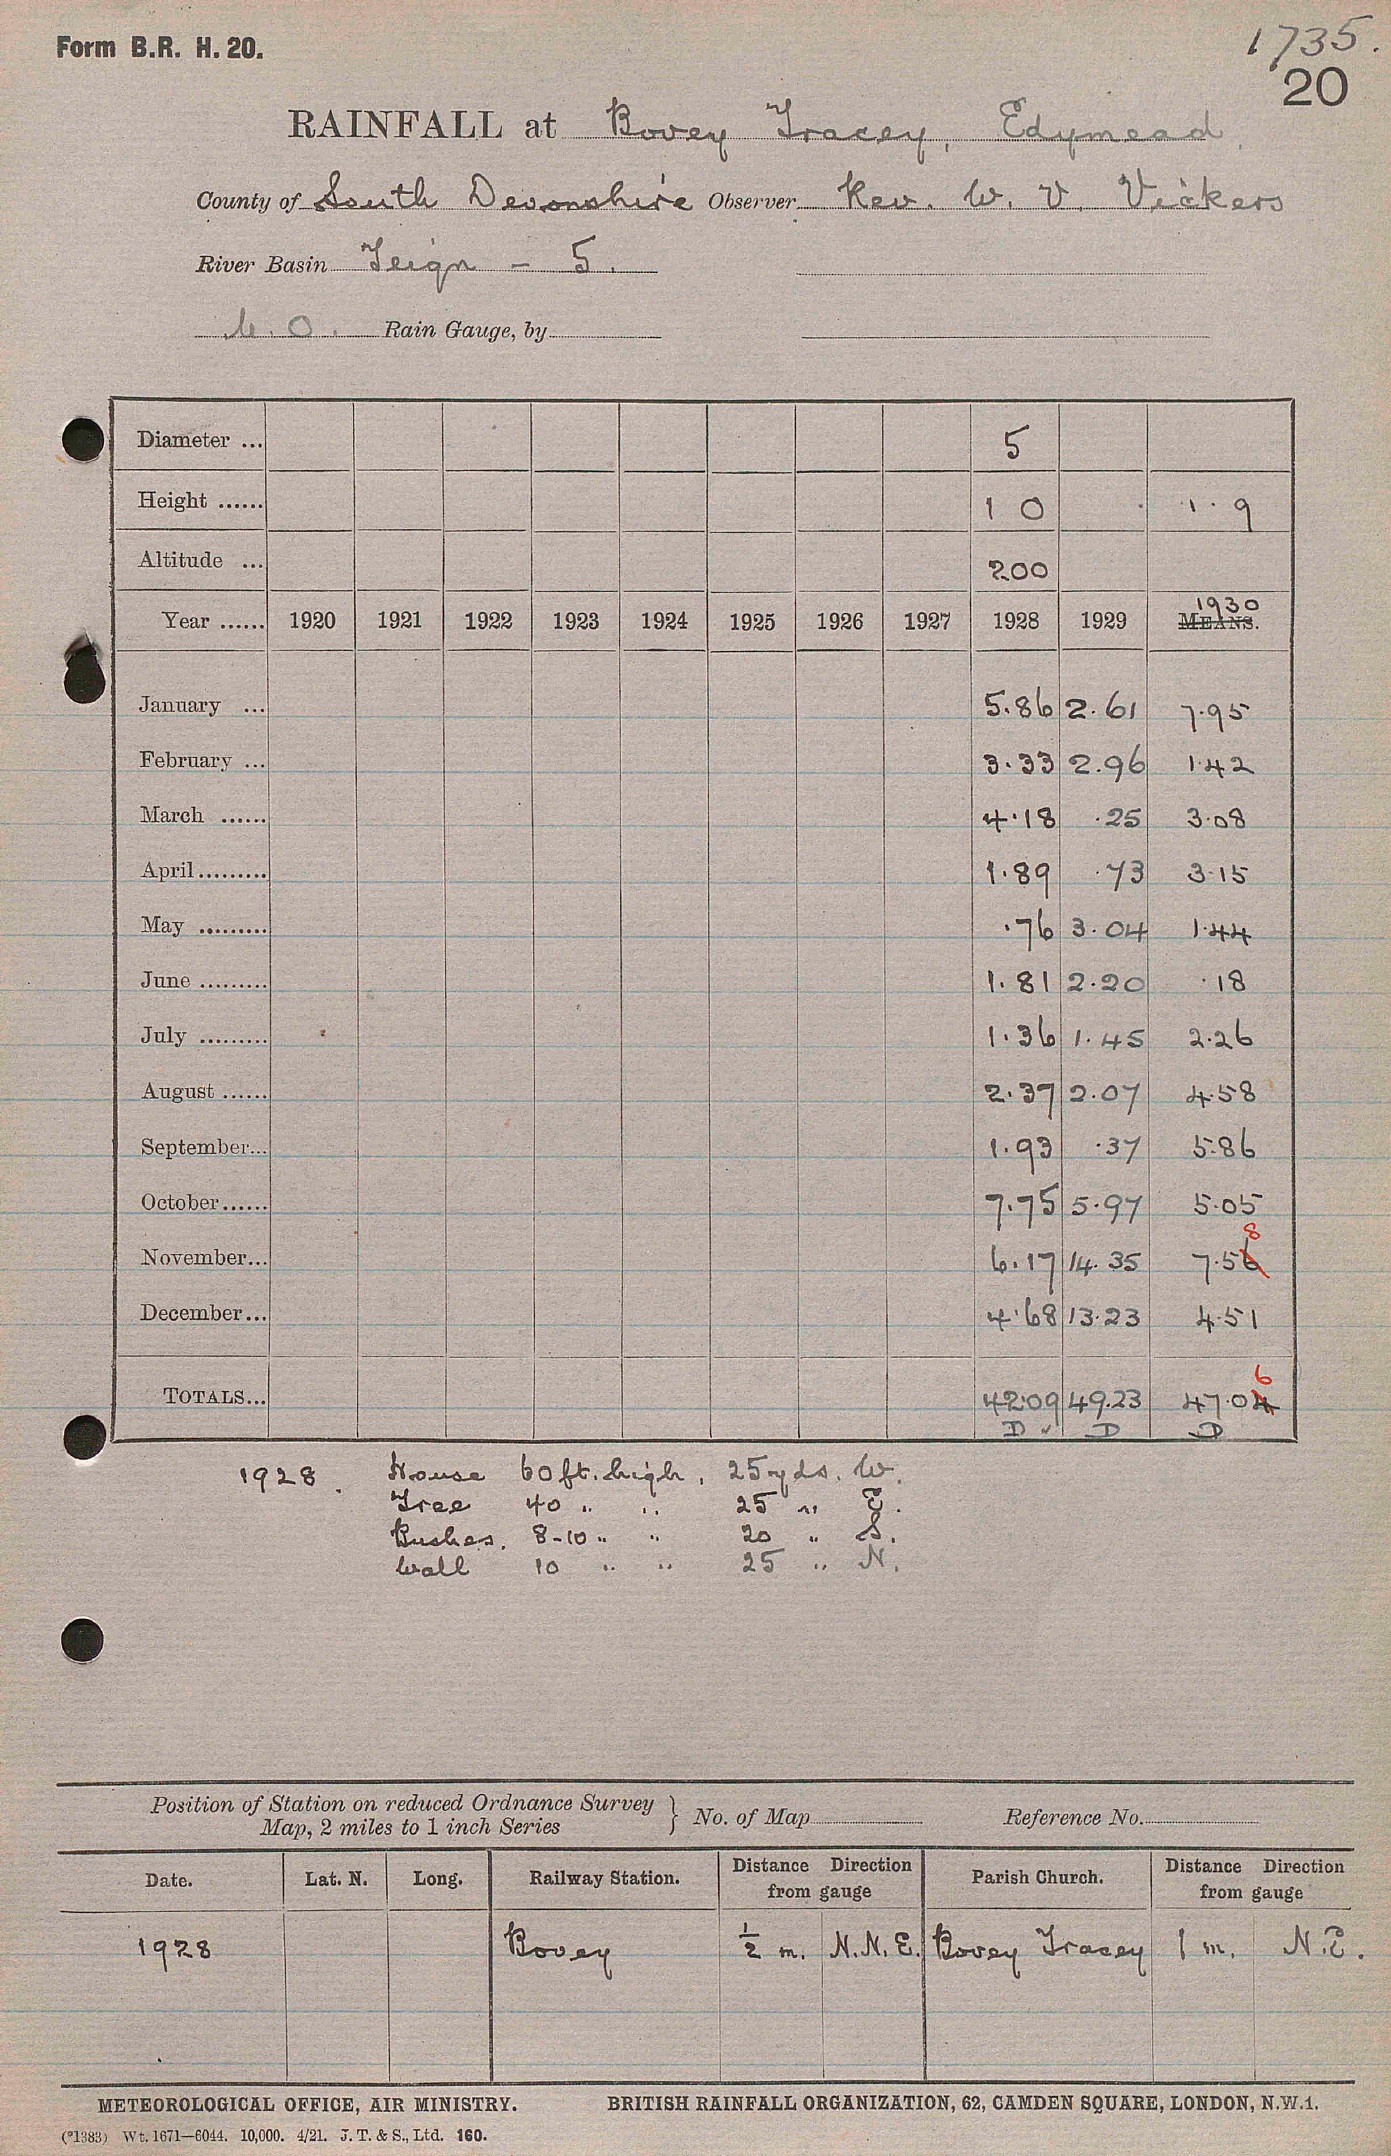 Form B.R. H. 20.
1735.
20
RAINFALL at Bovey Tracey, Edymead
County of South Devonshire Observer Rev. W. V. Vickers
River Basin Teign - 5.
M.O. Rain Gauge, by
Diameter ... 5
Height ...... 1 0 1 . 9
Altitude ... 200
Year ...... 1920 1921 1922 1923 1924 1925 1926 1927 1928 1929 MEANS. 1930
January ... 5.86 2.61 7.95
February ... 3.33 2.96 1.42
March ...... 4.18 .25 3.08
April ......... 1.89 .73 3.15
May ......... .76 3.04 1.44
June ......... 1.81 2.20 .18
July ......... 1.36 1.45 2.26
August ...... 2.37 2.07 4.58
September... 1.93 .37 5.86
October...... 7.75 5.97 5.05
November... 6.17 14.35 7.56 8
December... 4.68 13.23 4.51
TOTALS... 42.09 49.23 47.04 6
D D D
1928. House 60 ft. high, 25 yds. W.
Tree 40 " " 25 " E.
Bushes. 8-10 " " 20 " S.
Wall 10 " " 25 " N.
Position of Station on reduced Ordnance Survey
Map, 2 miles to 1 inch Series } No. of Map Reference No.
Date. Lat. N. Long. Railway Station. Distance Direction from gauge Parish Church. Distance Direction from gauge
1928 Bovey ½ m. N.N.E. Bovey Tracey 1 m. N.E.
METEOROLOGICAL OFFICE, AIR MINISTRY. BRITISH RAINFALL ORGANIZATION, 62, CAMDEN SQUARE, LONDON, N.W.1.
(*1383) Wt. 1671—6044. 10,000. 4/21. J. T. & S., Ltd. 160.